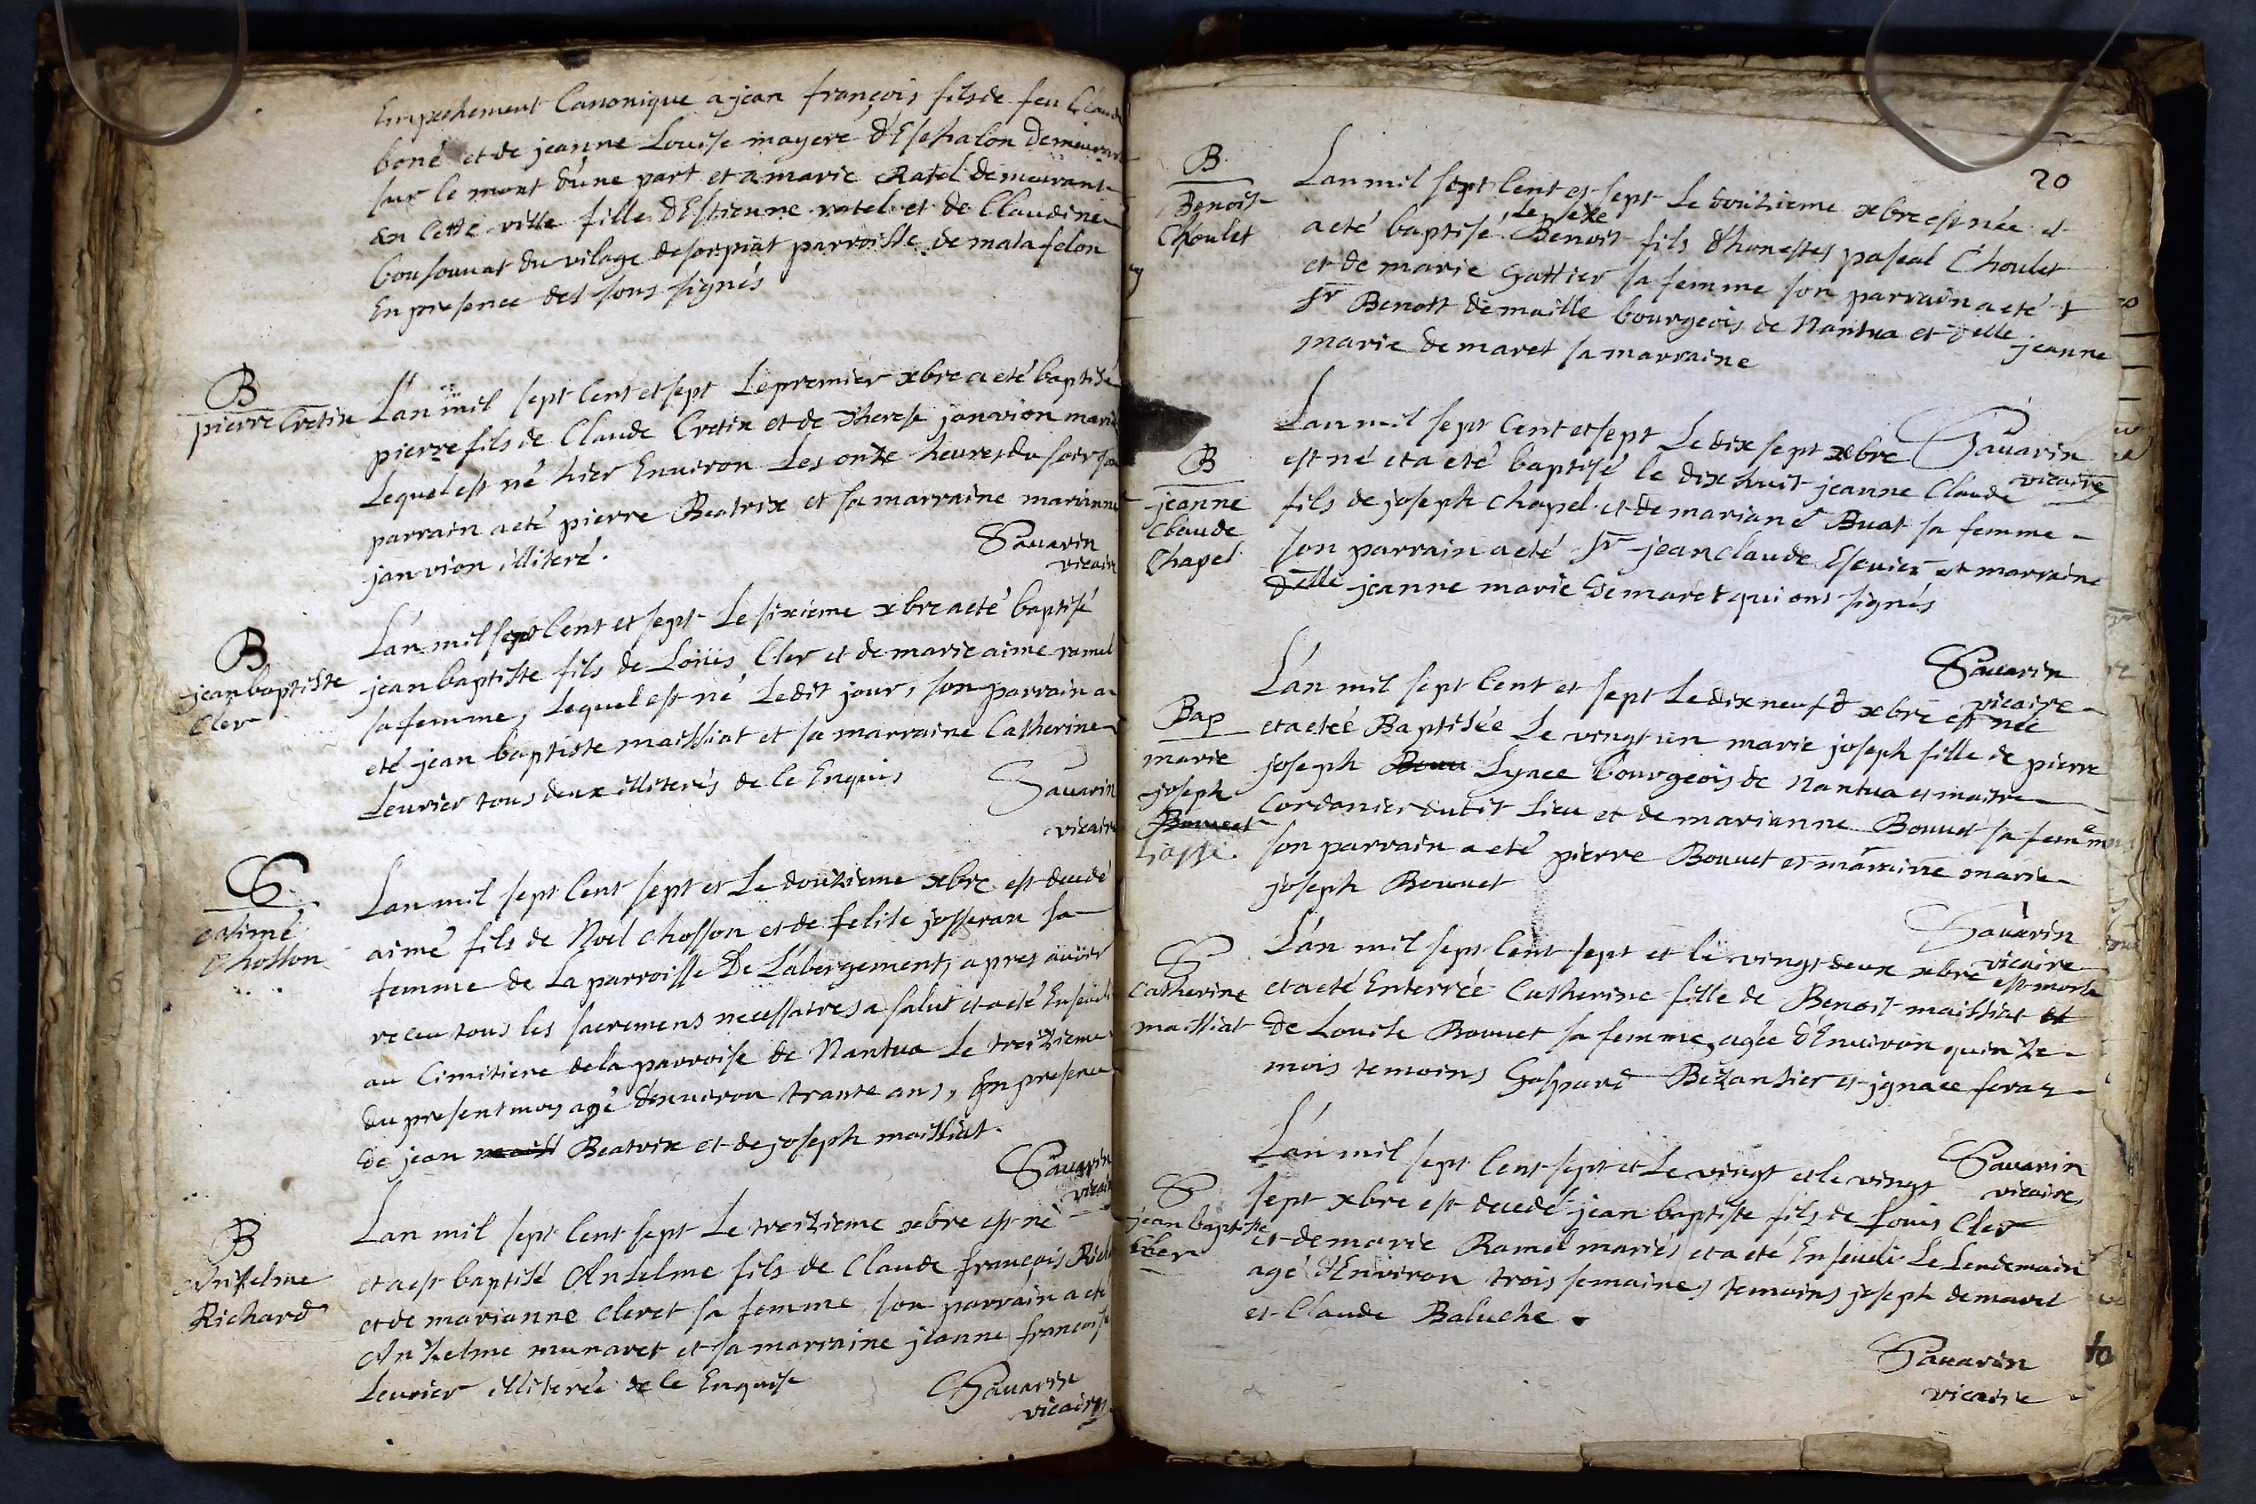 Empechement Canonique a jean françois fils de feu Claude
boné et de jeanne Louise mayere d'Eschalon Demeurant
sur le mont d'une part et a marie Ratel demeurant
en Cette ville fille d'Estienne ratel et de Claudine
bousounat du vilage de sorpiat parroisse de matafelon
En presence des sous signés
B
pierre Cretin
L'an mil sept Cent et sept Le premier xbre a eté baptisé
pierre fils de Claude Cretin et de Therese janvion mariés
Lequel est né hier Environ Les onze heures du soir son
parrain a eté pierre Beatrix et sa marraine marianne
janvion illiteré.
Sauarin
vicaire
B
jean baptiste
Cler
L'an mil sept Cent et sept Le sixieme xbre a eté baptisé
jean baptiste fils de Loüis Cler et de marie aime ramel
sa femme, Lequel est né Ledit jour, son parrain a
eté jean baptiste maissiat et sa marraine Catherine
Leurier tous deux illiterés de Ce Enquis
Sauarin
vicaire
S
Aimé
Chosson
Lan mil sept Cent sept et Le douzieme xbre est decedé
aimé fils de Noel chosson et de felise josseran sa
femme de La parroisse De L'abergement, apres auoir
receu tous les sacremens necessaires a salut et a eté Enseueli
au Cimitiere de la parroise de Nantua Le treizieme
du present moy agé d'enuiron trante ans, En presence
de jean maiss Beatrix et de joseph maissiat.
Sauarin
vicaire
B
Anzelme
Richard
Lan mil sept Cent sept Le treizieme xbre est né
et a est baptisé Anselme fils de Claude françois Richard
et de marianne Cleret sa femme, son parrain a eté
Anzelme munaret et sa marraine jeanne françoise
Leurier illiterée de Ce Enquise
Sauarin
vicaire
20
B
Benoist
Choulet
Lan mil sept Cent et sept Le douzieme xbre est née et
Le sexe
a eté baptisé Benoist fils d'honestes pascal Choulet
et de marie Gattier sa femme son parrain a eté
Sr Benoit demaille bourgeois de Nantua et delle jeanne
marie demaret sa marraine
Sauarin
vicaire
B
jeanne
Claude
Chapel
Lan mil sept Cent et sept Le dix sept xbre
est né et a eté baptisé le dix huit jeanne Claude
fils de joseph chapel et de mariané Buat sa femme
son parrain a eté Sr jean claude Escuier et marraine
delle jeanne marie demaret qui ont signés
Sauarin
vicaire
Bap
marie
joseph
Bouuet
L'an mil sept Cent et sept Le dix neuf d xbre est née
et a eteé Baptisée Le vingt un marie joseph fille de pierre
joseph Bouu Lyace bourgeois de Nantua et maitre
Cordanier dudit Lieu et de marianne Bouuet sa femme
son parrain a eté pierre Bouuet et marraine marie
joseph Bouuet
Sauarin
vicaire
S
Catherine
maissiat
L'an mil sept Cent sept et le vingt deux xbre est morte
et a eté Enterrée Catherine fille de Benoist maissiat et
de Louise Bouuet sa femme, agée d'Enuiron quinze
mois temoins Gaspard Bezansier et jgnace feraz
Sauarin
vicaire
S
jean baptiste
Cler
L'an mil sept Cent sept et Le vingt et le vingt
sept xbre est decedé jean baptiste fils de Louis Cler
et de marie Ramel mariés et a eté Enseueli Le Lendemain
agé d'Environ trois semaines temoins joseph demaret
et Claude Baluche.
Sauarin
vicaire